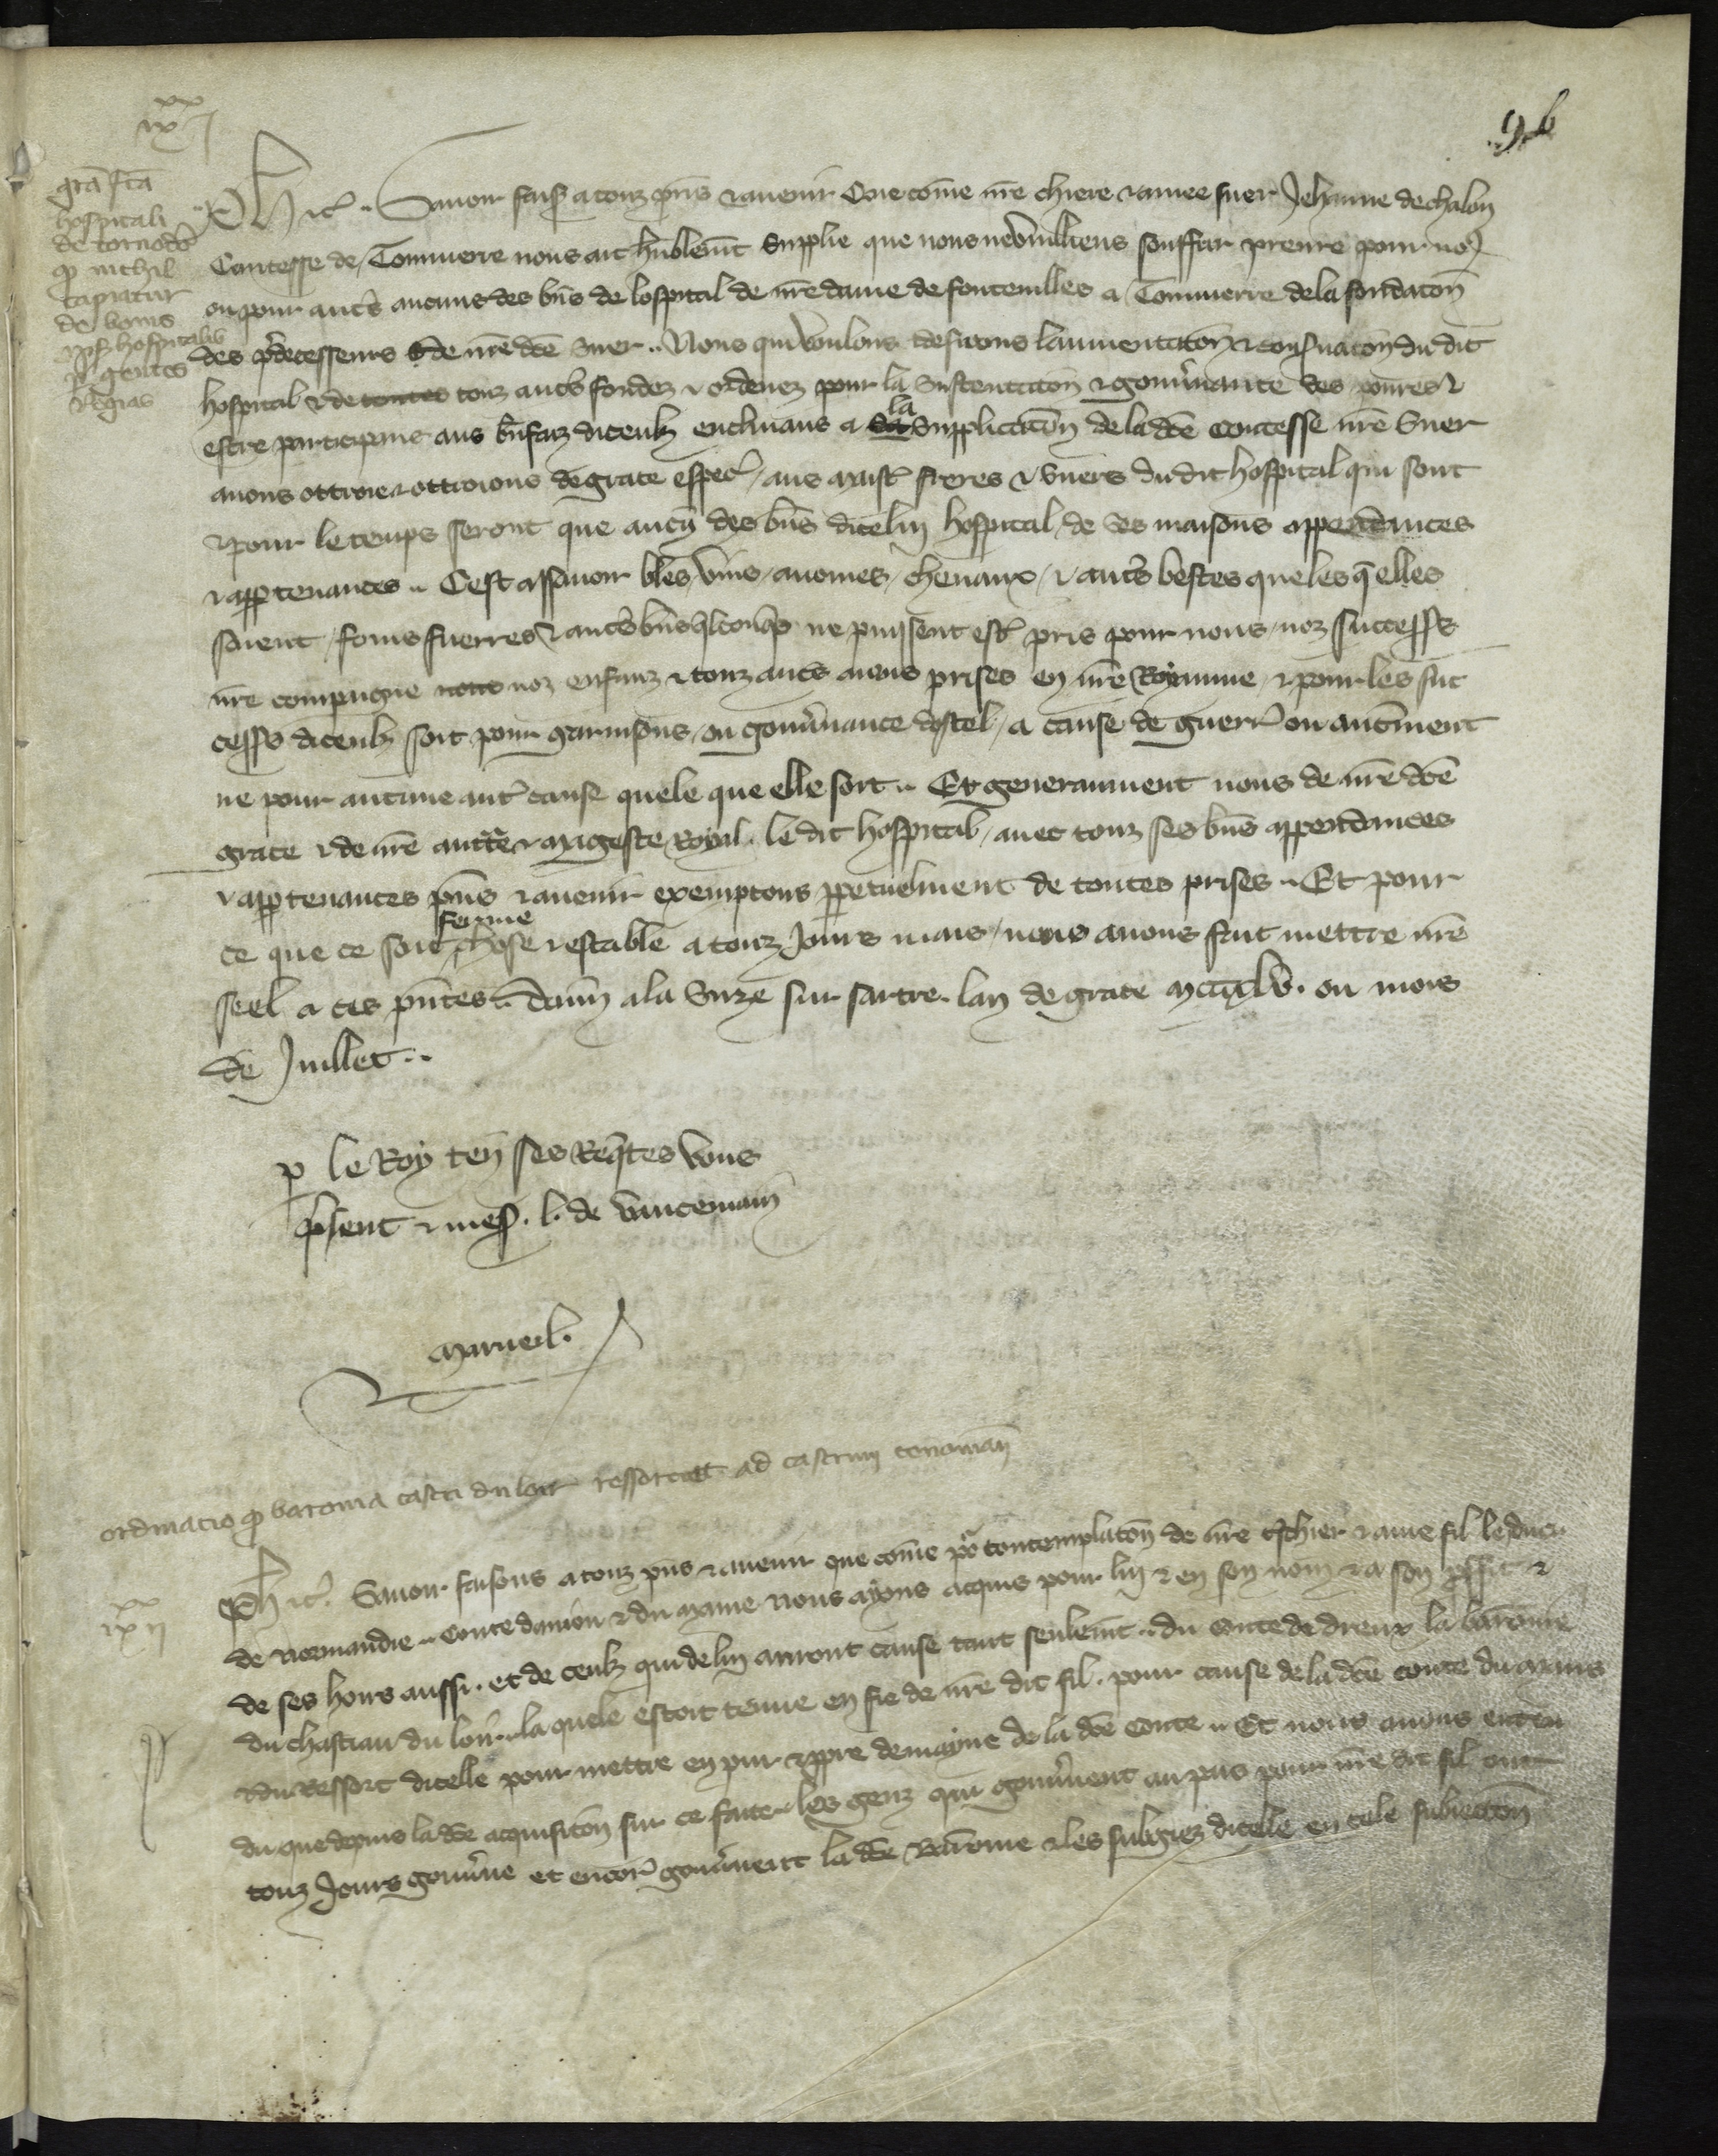 96
xx
ix j
gra fca
hospitali
de tornodo
q nichil
capiatur
de bonis
ips hospitalis
p gentes
regias
Ph etc. Savoir fais a touz pns et avenir Que come nre chiere et amee suer Jehanne de chalon
Contesse de Tonnerre nous ait humblemt supplie que nous ne vuilliens souffrir prenre pour no
ou pour autrs aucuns des bns de lospital de nre dame de fontenilles a Tonnerre de la fondacon
des predecesseurs de nre dce suer .. Nous qui voulons desirons laumentacon et conservacon du dit
hospital et de toutes touz autrs fondez et ordenez pour la sustentacon et gouvnance des povres et
estre participans aus bnfaiz diceulx enclinans a la supplicacon de la dce contesse nre suer
avons ottroie et ottroions de grace especl aus maist freres et suers du dit hospital qui sont
et pour le temps seront que aucun des bns dicelui hospital de ses maisons appendances
et apptenances .. Cest assavoir bles vins avoines chevaux et autrs bestes queles q elles
soient foins fuerres et autrs bns qlconqs ne puissent est pris pour nous noz successrs
nre compagne nous noz enfanz et touz autrs aiens prises en nre Royaume et pour les suc
cessrs diceulx soit pour garnisons ou gouvnance dostel a cause de guerr ou autrement
ne pour aucune autr cause quele que elle soit .. Et generaument nous de nre dce
grace et de nre auctte et mageste Royal le dit hospital avec touz ses bns appendances
et apptenances pns et avenir exemptons ppetuelment de toutes prises .. Et pour
ferme
ce que ce soit chose et estable a touz jours mais nous avons fait mettre nre
seel a ces pntes .. Donn a la Suze sur sartre lan de grace m ccc xlv. ou mois
de Juillet ..
p le Roy ten ses Reqstes vous
psent et mes. l. de vaucemain
marueil.
ordinacio q baronia castri du loir ressortet ad castrum cenoman
xx
ix ij
Ph etc. Savoir faisons a touz pns et avenir que come por contemplacon de nre chier et ame fil le duc
de Normandie .. Conte danjou et du Maine Nous ayons acquis pour lui et en son nom et a son pffit et
de ses hoirs aussi . et de ceulx qui de lui auront cause tant seulemt .. du Conte de dreux la baronnie
du chastiau du loir .. la quele estoit tenue en fie de nre dit fil . pour cause de la dce conte du Mains
et du Ressort dicelle pour mettre en pur et ppre demayne de la dce Conte .. Et nous avons enten
du que depuis la dce acquisicon sur ce faite les genz qui gouvnent au pais pour nre dit fil ont
touz jours gouvne et encor gouvnent la dce Baronie et les subgiez dicelle en cele subieccon